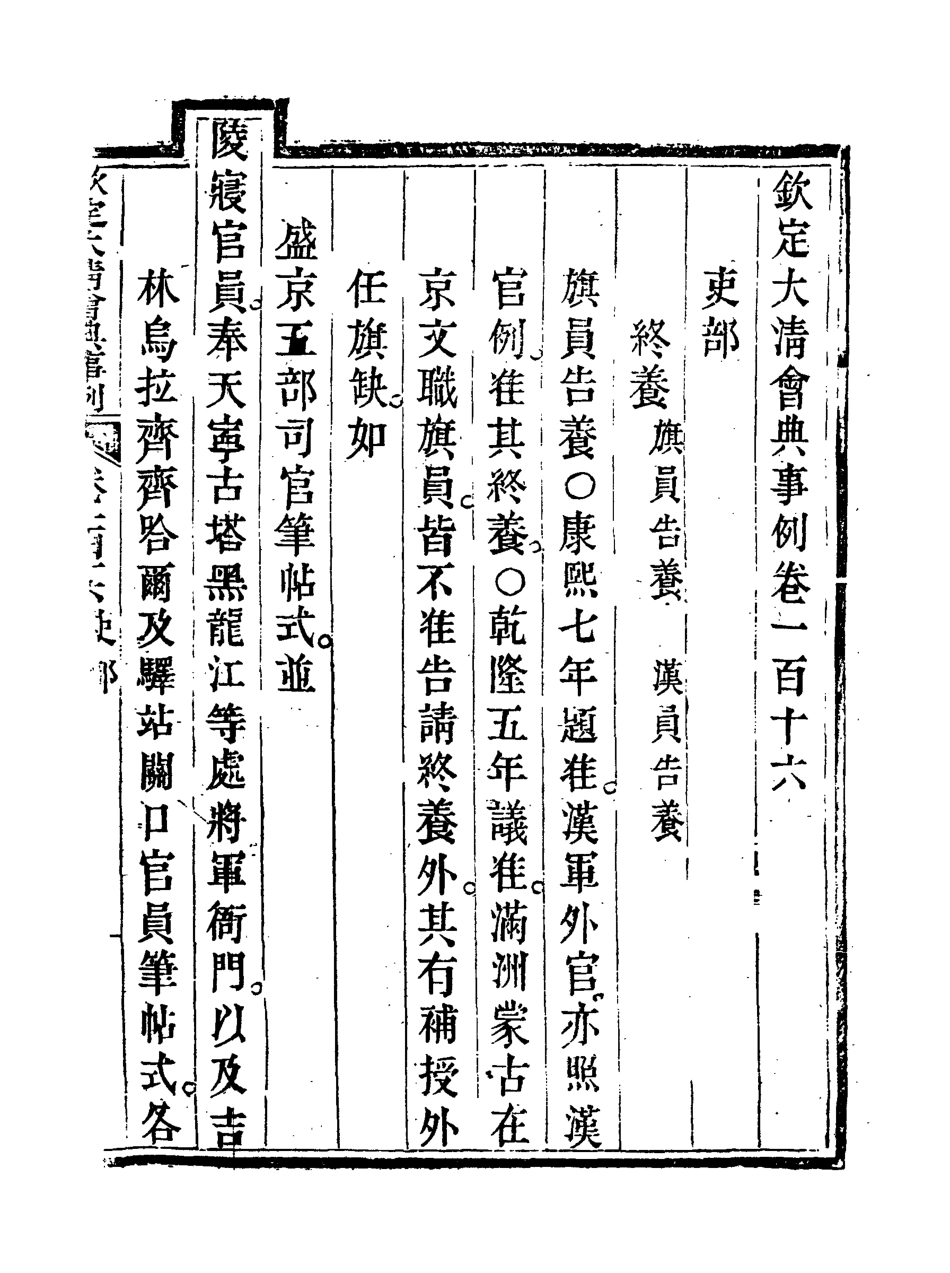 欽定大淸會典事例卷一百十六
吏部
終養 旗員告養 漢員告養
旗員告養○康熙七年題准。漢軍外官。亦照漢
官例。准其終養。○乾隆五年議准。滿洲蒙古在
京文職旗員。皆不准告請終養外。其有補授外
任旗缺。如
盛京五部司官筆帖式。並
陵寢官員。奉天寧古塔黑龍江等處將軍衙門。以及吉
林烏拉齊齊哈爾及驛站關口官員筆帖式。各
欽定大清會典事例 卷一百十六 吏部